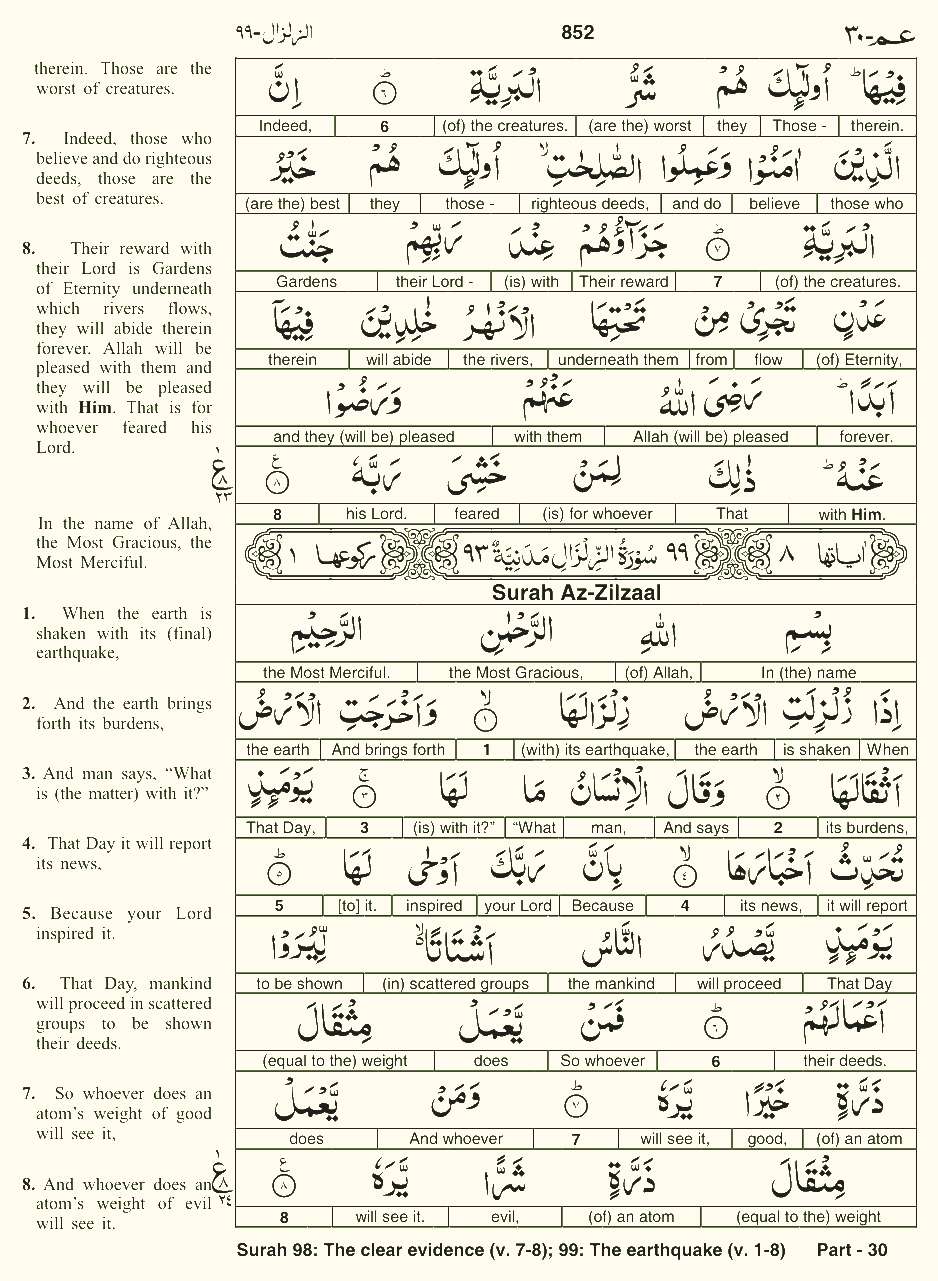 عـم-٣٠ 852 الزلزال-٩٩
therein. Those are the
worst of creatures.
7. Indeed, those who
believe and do righteous
deeds, those are the
best of creatures.
8. Their reward with
their Lord is Gardens
of Eternity underneath
which rivers flows,
they will abide therein
forever. Allah will be
pleased with them and
they will be pleased
with Him. That is for
whoever feared his
Lord.
In the name of Allah,
the Most Gracious, the
Most Merciful.
1. When the earth is
shaken with its (final)
earthquake,
2. And the earth brings
forth its burdens,
3. And man says, “What
is (the matter) with it?”
4. That Day it will report
its news,
5. Because your Lord
inspired it.
6. That Day, mankind
will proceed in scattered
groups to be shown
their deeds.
7. So whoever does an
atom’s weight of good
will see it,
8. And whoever does an
atom’s weight of evil
will see it.
فِيْهَا ؕ اُولٰٓئِكَ هُمْ شَرُّ الْبَرِيَّةِ ؕ ٦ اِنَّ
Indeed, 6 (of) the creatures. (are the) worst they Those - therein.
الَّذِيْنَ اٰمَنُوْا وَعَمِلُوا الصّٰلِحٰتِ ۙ اُولٰٓئِكَ هُمْ خَيْرُ
(are the) best they those - righteous deeds, and do believe those who
الْبَرِيَّةِ ؕ ٧ جَزَآؤُهُمْ عِنْدَ رَبِّهِمْ جَنّٰتُ
Gardens their Lord - (is) with Their reward 7 (of) the creatures.
عَدْنٍ تَجْرِىْ مِنْ تَحْتِهَا الْاَنْهٰرُ خٰلِدِيْنَ فِيْهَاۤ
therein will abide the rivers, underneath them from flow (of) Eternity,
اَبَدًا ؕ رَضِىَ اللّٰهُ عَنْهُمْ وَرَضُوْا
and they (will be) pleased with them Allah (will be) pleased forever.
عَنْهُ ؕ ذٰلِكَ لِمَنْ خَشِىَ رَبَّهٗ ٨ ع
١ ع ٨ ٢٣
8 his Lord. feared (is) for whoever That with Him.
اٰياتها ٨ ٩٩ سُوْرَةُ الزِّلْزَالِ مَدَنِيَّةٌ ٩٣ ركوعها ١
Surah Az-Zilzaal
بِسْمِ اللّٰهِ الرَّحْمٰنِ الرَّحِيْمِ
the Most Merciful. the Most Gracious, (of) Allah, In (the) name
اِذَا زُلْزِلَتِ الْاَرْضُ زِلْزَالَهَا ۙ ١ وَاَخْرَجَتِ الْاَرْضُ
the earth And brings forth 1 (with) its earthquake, the earth is shaken When
اَثْقَالَهَا ۙ ٢ وَقَالَ الْاِنْسَانُ مَا لَهَا ۚ ٣ يَوْمَئِذٍ
That Day, 3 (is) with it?” “What man, And says 2 its burdens,
تُحَدِّثُ اَخْبَارَهَا ۙ ٤ بِاَنَّ رَبَّكَ اَوْحٰى لَهَا ؕ ٥
5 [to] it. inspired your Lord Because 4 its news, it will report
يَوْمَئِذٍ يَّصْدُرُ النَّاسُ اَشْتَاتًا ۙ لِّيُرَوْا
to be shown (in) scattered groups the mankind will proceed That Day
اَعْمَالَهُمْ ؕ ٦ فَمَنْ يَّعْمَلْ مِثْقَالَ
(equal to the) weight does So whoever 6 their deeds.
ذَرَّةٍ خَيْرًا يَّرَهٗ ؕ ٧ وَمَنْ يَّعْمَلْ
does And whoever 7 will see it, good, (of) an atom
مِثْقَالَ ذَرَّةٍ شَرًّا يَّرَهٗ ٨ ع
١ ع ٨ ٢٤
8 will see it. evil, (of) an atom (equal to the) weight
Surah 98: The clear evidence (v. 7-8); 99: The earthquake (v. 1-8) Part - 30